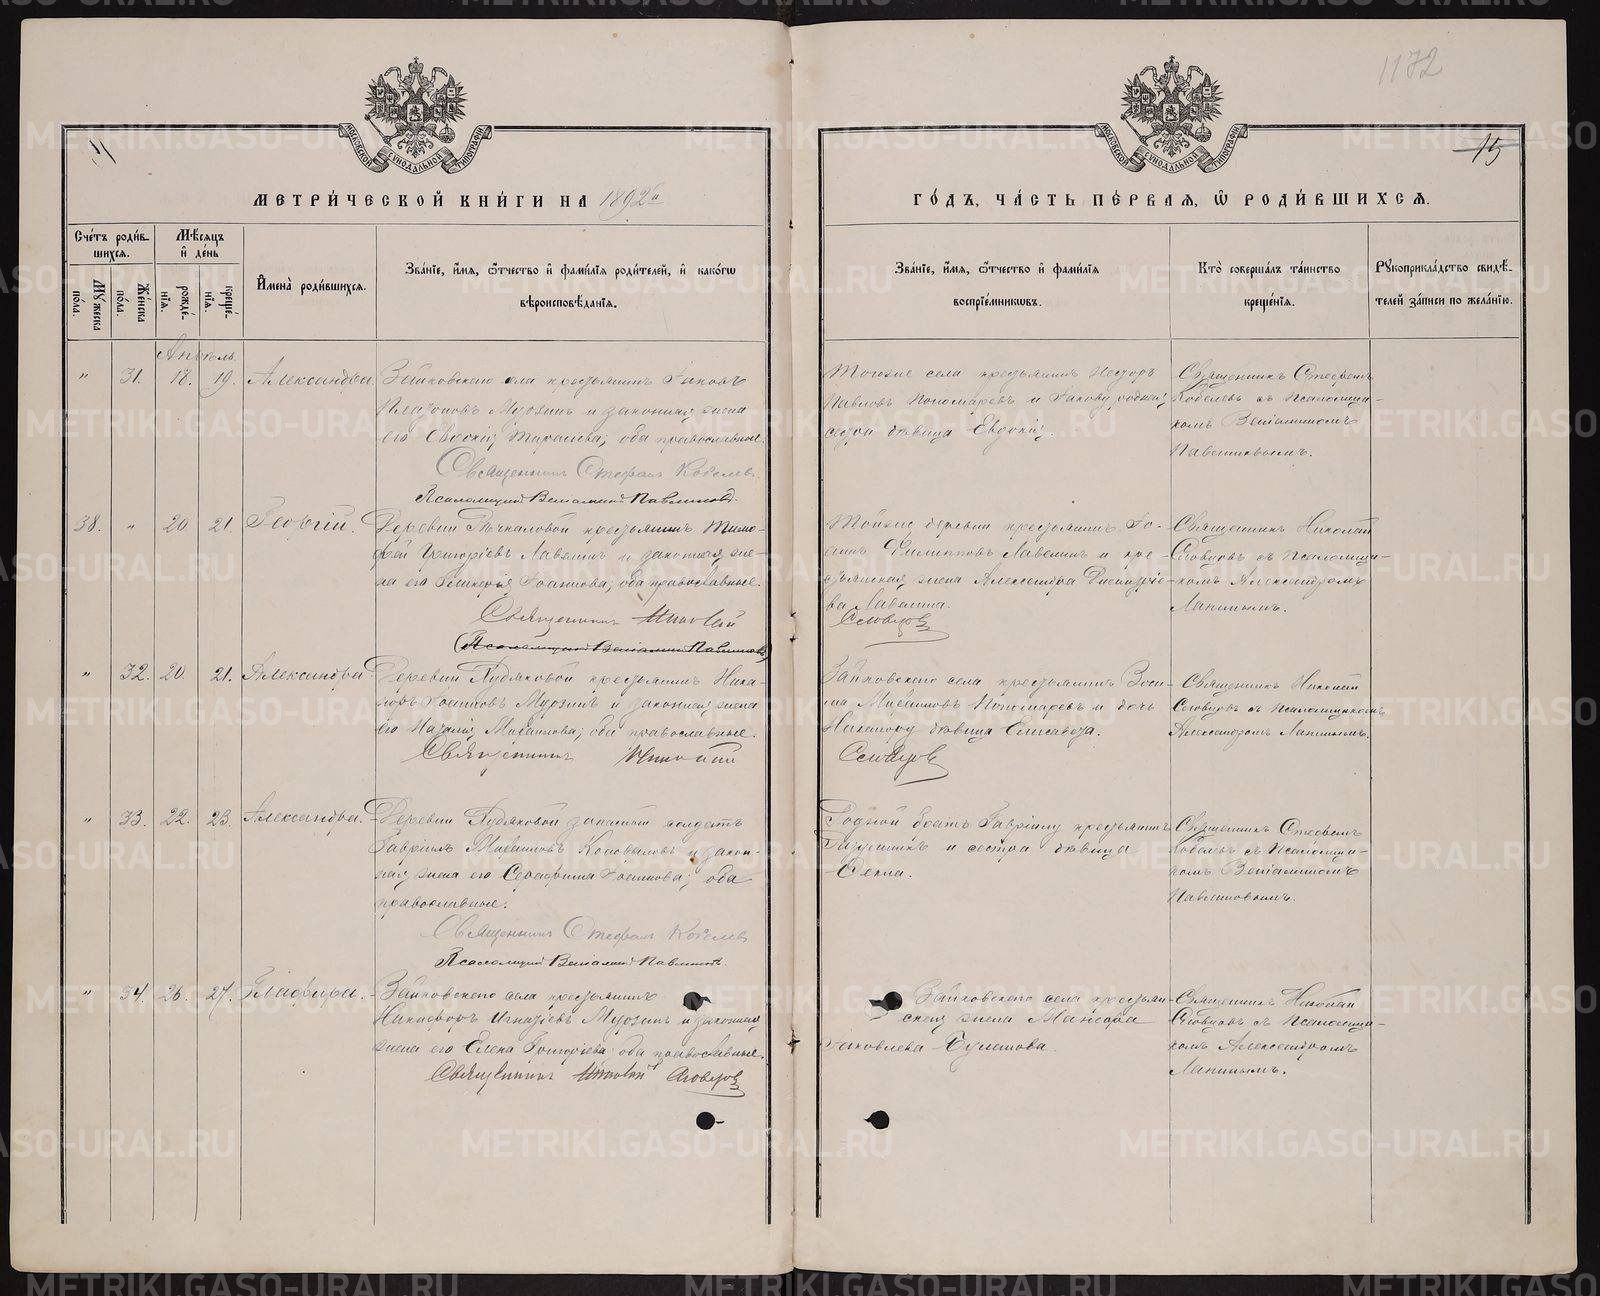 1172
15
МОСКОВСКОЙ СѴНОДАЛЬНОЙ ТИПОГРАФІИ
МОСКОВСКОЙ СѴНОДАЛЬНОЙ ТИПОГРАФІИ
МЕТРИ́ЧЕСКОЙ КНИ́ГИ НА 1892й
ГО́ДЪ, ЧА́СТЬ ПЕ́РВАЯ, Ѡ РОДИ́ВШИХСЯ.
Сче́тъ роди́в-
шихся.
Мꙋ́жеска по́ла.
Же́нска по́ла.
Мѣ́сяцъ и҆ де́нь
рожде́-нїя.
креще́-нїя.
И҆мена̀ роди́вшихся.
Зва́нїе, и҆́мя, ѻ҆́тчество и҆ фами́лїя роди́телей, и҆ како́гѡ
вѣроисповѣ́данїя.
Зва́нїе, и҆́мя, ѻ҆́тчество и҆ фами́лїя
воспрїе́мникѡвъ.
Кто̀ соверша́лъ та́инство
креще́нїя.
Рꙋкоприкла́дство свидѣ́-
телей за́писи по жела́нїю.
Апрѣль.
" 31. 18. 19. Александра.
Зайковскаго села крестьянинъ Іаковъ
Платоновъ Мурзинъ и законная жена
его Евдокія Тарасіева; оба православные.
Священникъ Стефанъ Кобелевъ
Псаломщикъ Веніаминъ Павлиновъ.
Тогоже села крестьянинъ Несторъ
Павловъ Пономаревъ и Іакову родная
сестра дѣвица Евдокія.
Священникъ Стефанъ
Кобелевъ съ Псаломщи-
комъ Веніаминомъ
Павлиновымъ.
38. " 20 21. Георгій.
Деревни крестьянинъ Тимо-
фей Григоріевъ Лавелинъ и законная же-
на его Гликерія Іоаннова; оба православные.
Священникъ Николай
Псаломщикъ Веніаминъ Павлиновъ
Тойже деревни крестьянинъ Іо-
аннъ Филипповъ Лавелинъ и кре-
стьянская жена Александра Димитріе-
ва Лавелина.
Словцовъ
Священникъ Николай
Словцовъ съ Псаломщи-
комъ Александромъ
Лапинымъ.
" 32. 20. 21. Александра
Деревни Худяковой крестьянинъ Ника-
норъ Іоанновъ Мурзинъ и законная жена
его Наталія Михаилова; оба православные.
Священникъ Николай
Зайковскаго села крестьянинъ Зоси-
ма Михаиловъ Пономаревъ и дочь
Никанору дѣвица Елисавета.
Словцовъ
Священникъ Николай
Словцовъ съ Псаломщикомъ
Александромъ Лапинымъ.
" 33. 22. 23. Александра.
Деревни Худяковой запасной солдатъ
Гавріилъ Михаиловъ Коноваловъ и закон-
ная жена его Серафима Іоаннова; оба
православные.
Священникъ Стефанъ Кобелевъ
Псаломщикъ Веніаминъ Павлиновъ.
Родной братъ Гавріилу крестьянинъ
и сестра дѣвица
Ѳекла.
Священникъ Стефанъ
Кобелевъ съ Псаломщи-
комъ Веніаминомъ
Павлиновымъ.
" 34. 26. 27. Глафира.
Зайковскаго села крестьянинъ
Никифоръ Игнатіевъ Мурзинъ и законная
жена его Елена Григоріева; оба православные.
Священникъ Николай Словцовъ
Зайковскаго села крестьян-
ская жена
Іаковлева
Священникъ Николай
Словцовъ съ Псаломщи-
комъ Александромъ
Лапинымъ.
METRIKI.GASO-URAL.RU